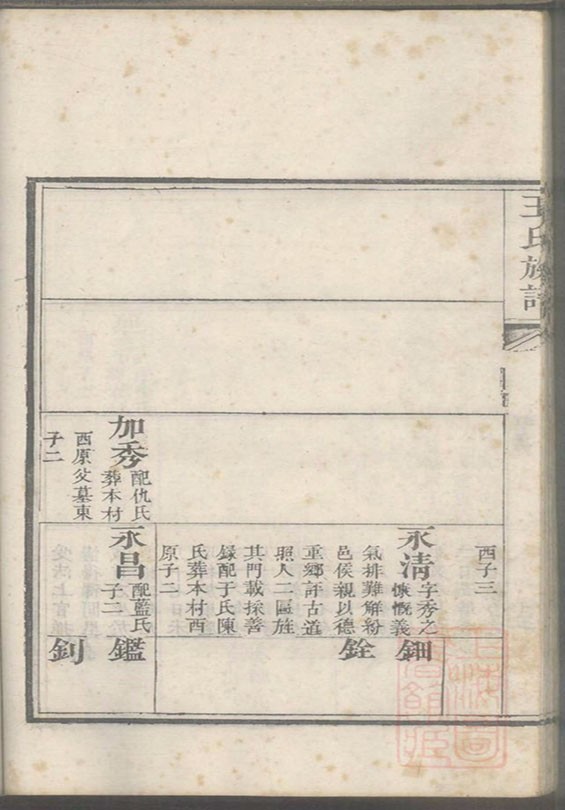 王氏族譜
加秀
配仇氏
葬本村
西原父墓東
子二
西子三
永清
字秀之
慷慨義
氣排難解紛
邑侯親以德
重鄉評古道
照人二匾旌
其門載採善
錄配于氏陳
氏葬本村西
原子二
永昌
配藍氏
子二
鈿
銓
鑑
釗